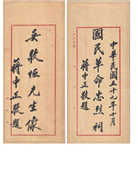 中華民國五十九年十月
國民革命忠烈祠
蔣中正敬題
吳敬恆先生像
蔣中正敬題